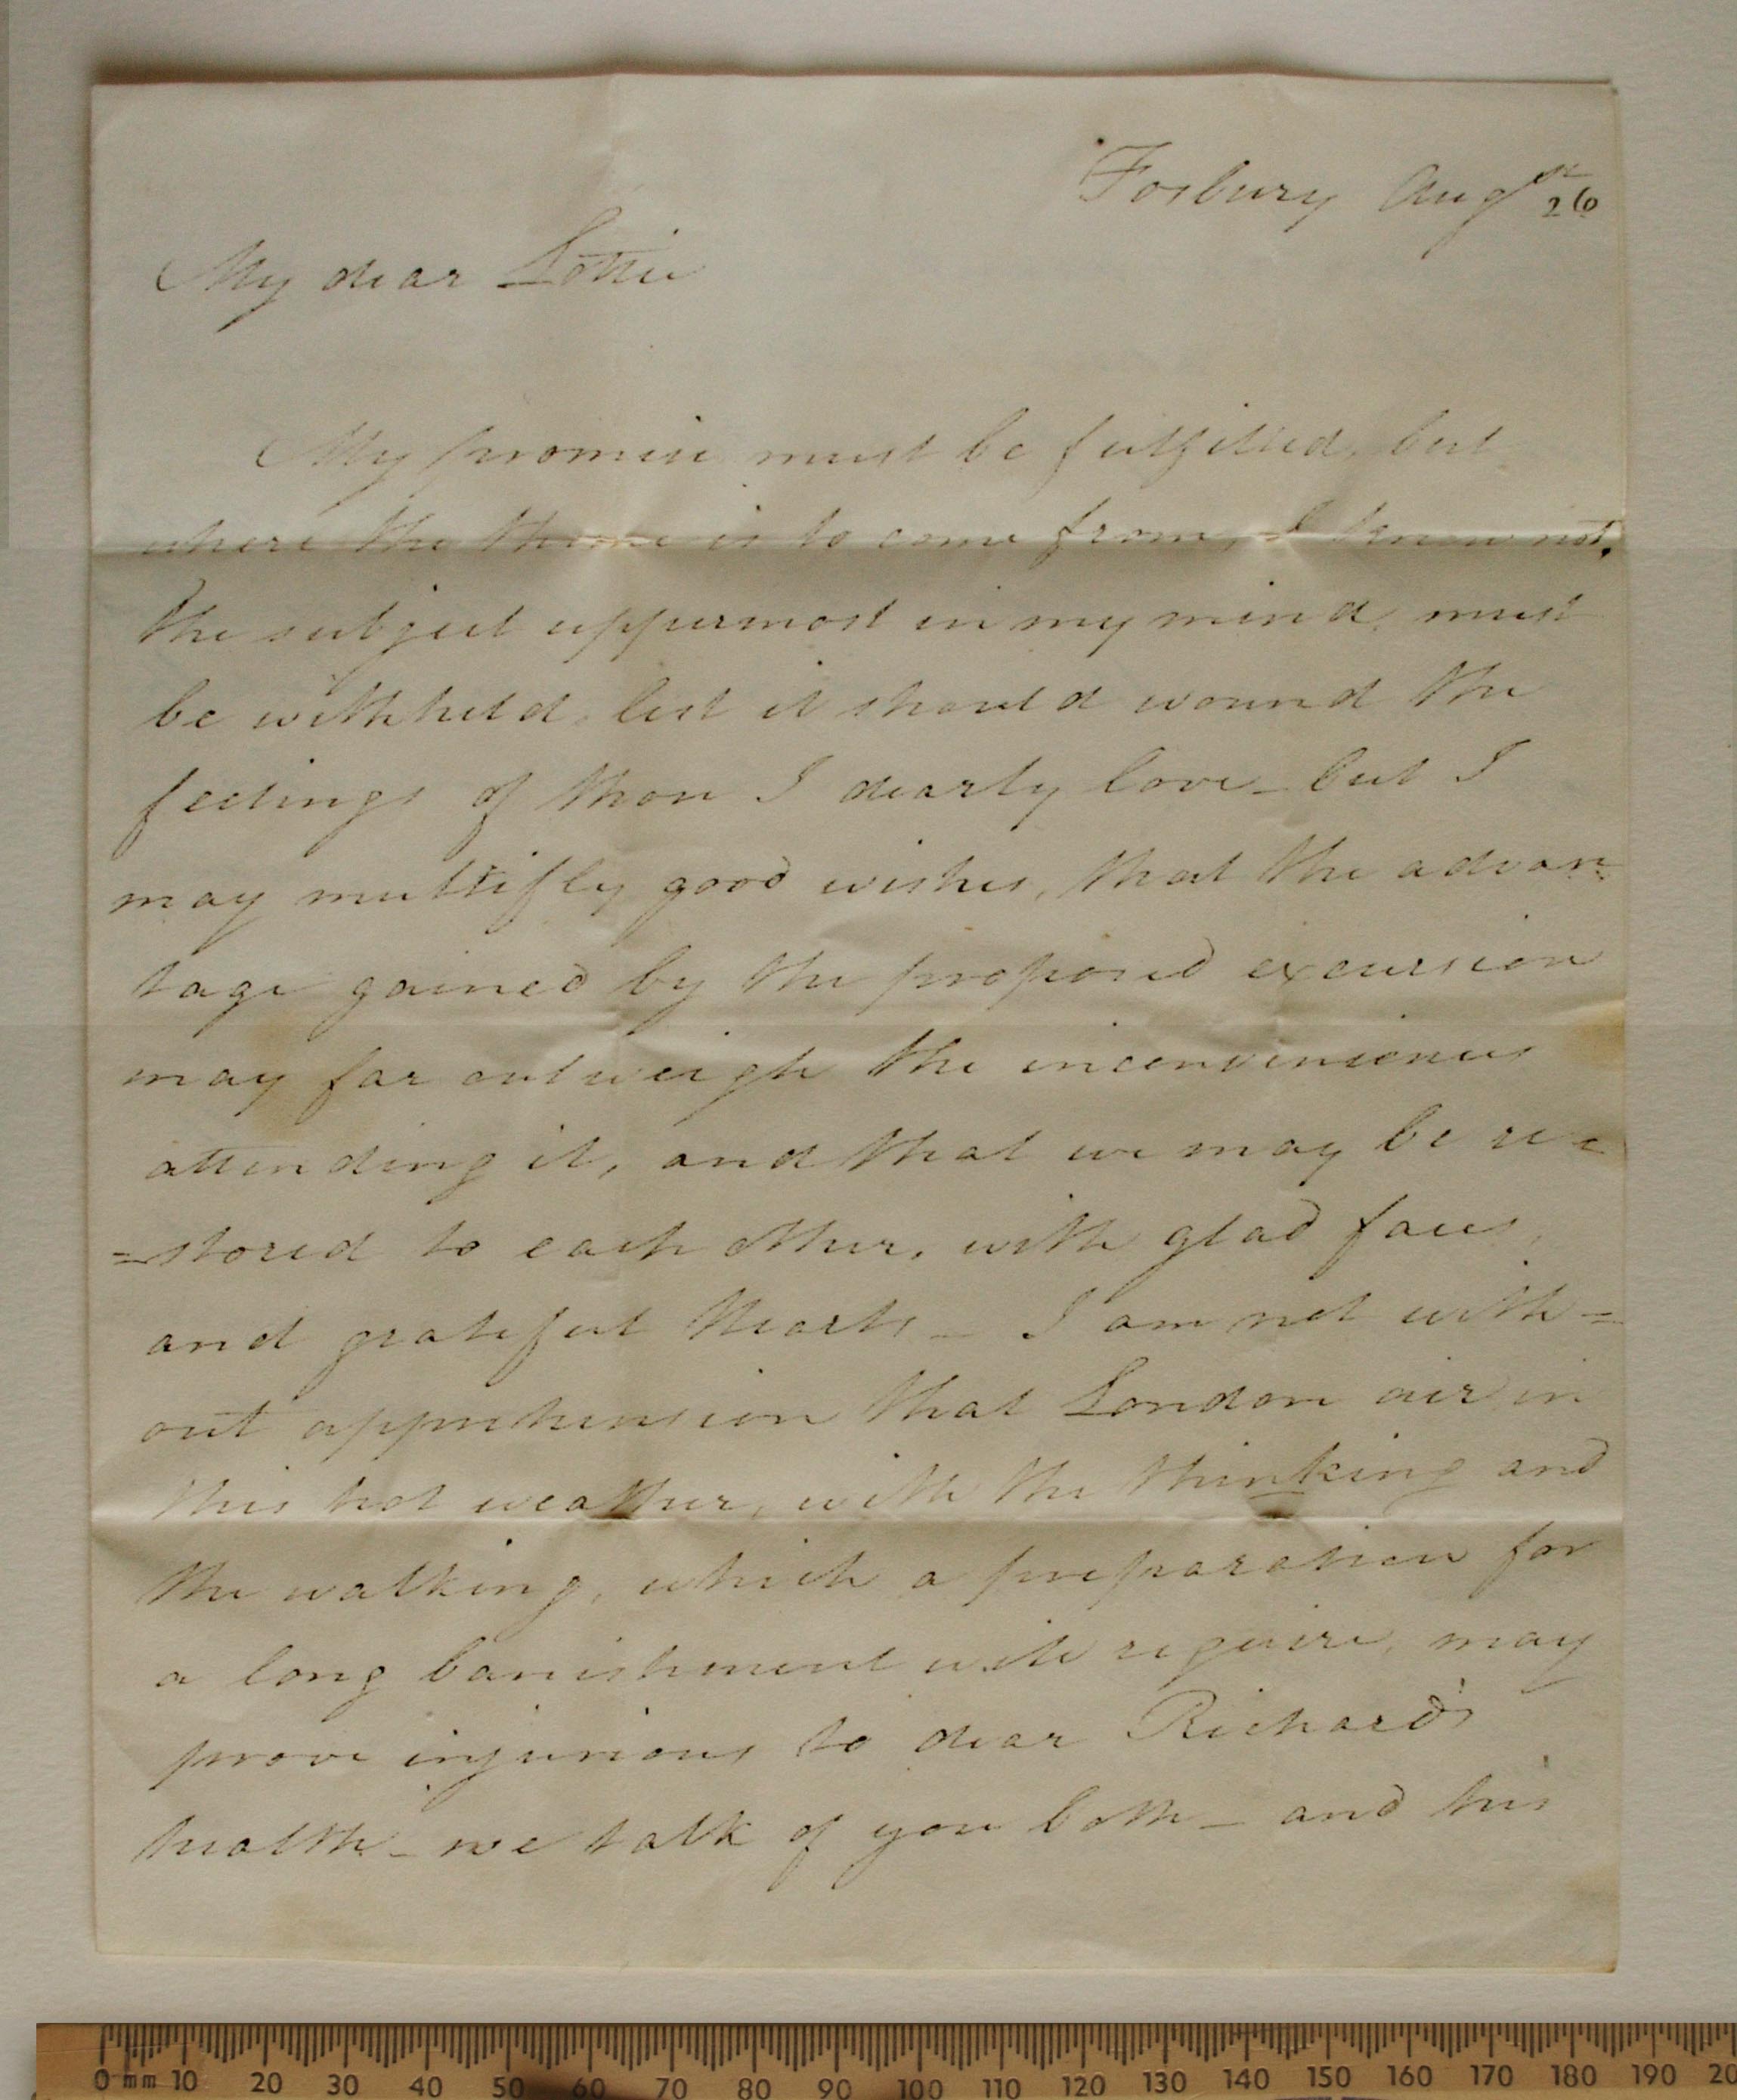 Fosbury Augst 26
My dear Lottie
My promise must be fulfilled, but
where the theme is to come from, I know not.
The subject uppermost in my mind, must
be withheld, lest it should wound the
feelings of those I dearly love - but I
may multiply good wishes, that the advan
tage gained by the proposed excursion
may far outweigh the inconveniences
attending it, and that we may be re=
=stored to each other, with glad faces,
and grateful hearts - I am not with=
out apprehension that London air in
this hot weather, with the thinking and
the walking, which a preparation for
a long banishment will require, may
prove injurious to dear Richard's
health - we talk of you both - and his
0 mm 10 20 30 40 50 60 70 80 90 100 110 120 130 140 150 160 170 180 190 20